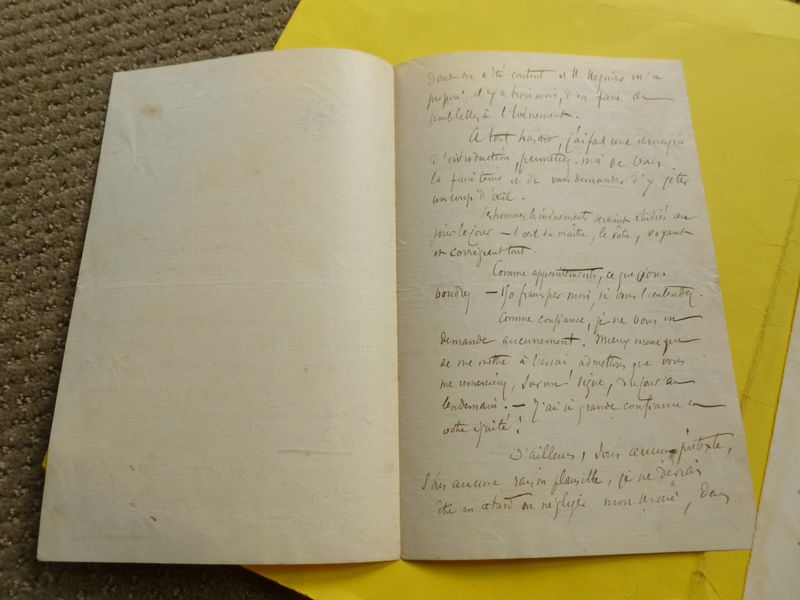 dont on a été content et M. Magnier m'a
proposé, il y a trois mois, d'en faire de
semblables à l'Événement.
A tout hasard, j'ai fait une chronique
d'introduction, permettez-moi de vous
la
et de vous demander d'y jeter
un coup d'œil.
Les hommes, les événements seraient étudiés au
jour le jour — l'œil du maître, le vôtre, voyant
et corrigeant tout.
Comme appointements, ce que vous
voudrez — 150 francs par mois, si vous l'entendez.
Comme confiance, je ne vous en
demande aucunement. Mieux encore que
de me mettre à l'essai admettons que vous
me remerciez, sur un signe, du jour au
lendemain. — J'ai si grande confiance en
votre équité !
D'ailleurs, sous aucun prétexte,
sans aucune raison plausible, je ne devrais
être en retard ou négliger mon
, dans